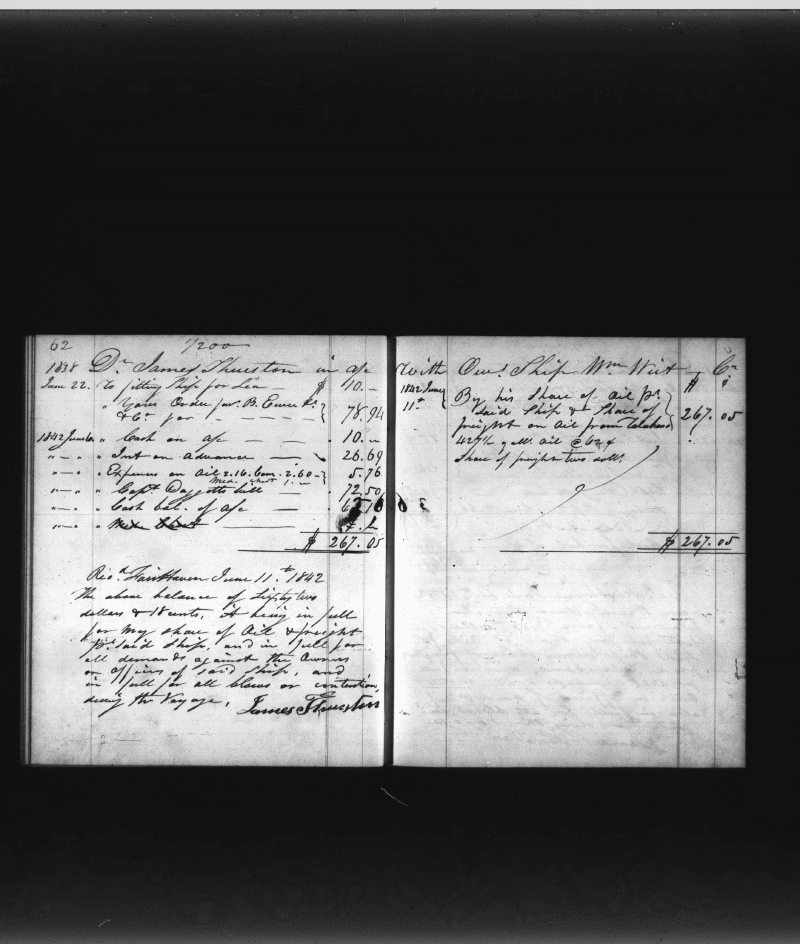 62 1/200
1838 Dr. James Thurston in a/c
June 22. To fitting Ship for Sea — $ 10.—
" Your Order fav. B. Ewer Jr.
& Co. for — 78.94
1842 June " Cash on a/c — — 10.—
"—" " Int on advance — 26.69
"—" " Expenses on Oil 2.16. Com. 2.60 — 5.76
Med. Chest 1.—
"—" " Capt Daggetts bill — 72.50
"—" " Cash bal. of a/c — 62.18
"—" " Med. Chest
$ 267.05
Recd. Fairhaven June 11th 1842
the above balance of Sixty two
dollars & 18 cents, it being in full
for my share of Oil & freight
pr. said Ship, and in full for
all demands against the Owners
or officers of said Ship, and
in full for all claims or contention,
during the Voyage,
James Thurston
With Own. Ship Wm Wirt — Cr
1842 June
11th
By his Share of Oil pr.
said Ship & Share of
freight on Oil from 267.05
Oil @ 62
Share of freight two dolls.
$ 267.05